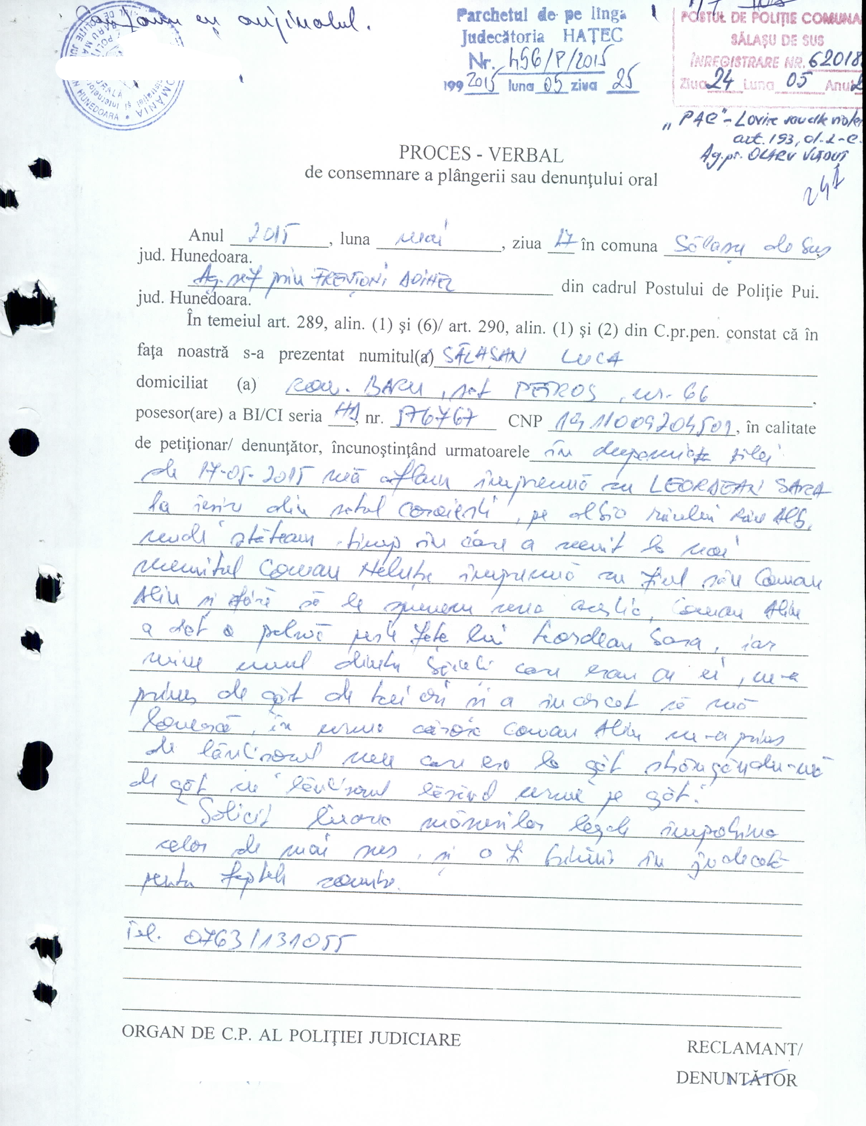 Conform cu originalul.
ROMANIA
HUNEDOARA
Parchetul de pe lîngă
Judecătoria HAȚEG
Nr. 456/P/2015
199 2015 luna 05 ziua 25
POSTUL DE POLIȚIE COMUNA
SĂLAȘU DE SUS
ÎNREGISTRARE NR. 62018
Ziua 24 Luna 05 Anul
„PAC" - Lovire sau alte violen
art. 193, al. 2 C.
Ag. pr.
PROCES - VERBAL
de consemnare a plângerii sau denunțului oral
Anul 2015, luna mai, ziua 17 în comuna Sălașu de Sus
jud. Hunedoara.
Ag. șef prin din cadrul Postului de Poliție Pui.
jud. Hunedoara.
În temeiul art. 289, alin. (1) și (6)/ art. 290, alin. (1) și (2) din C.pr.pen. constat că în
fața noastră s-a prezentat numitul(a) SĂLĂȘAN LUCA
domiciliat (a) com. BARU, sat PETROS, nr. 66
posesor(are) a BI/CI seria HD, nr. 576767 CNP în calitate
de petiționar/ denunțător, încunoștințând urmatoarele în după-amiaza zilei
de 17-05-2015 mă aflam împreună cu LEORDEAN SARA
la ieșire din satul Coroiești, pe albia râului Râu Alb,
unde stăteam timp în care a venit la noi
numitul Coman Neluțu împreună cu fiul său Coman
Alin și fără să le spunem ceva aceștia, Coman Alin
a dat o palmă peste fete lui Leordean Sara, iar
mine unul dintre băieți care erau cu ei, m-a
prins de gât de trei ori și a încercat să mă
lovească, în urma cărora Coman Alin m-a prins
de lănțișorul meu care era la gât strângându-mă
de gât cu lănțișorul lăsând urme pe gât.
Solicit luarea măsurilor legale împotriva
celor de mai sus, și a fi trimiși în judecată
pentru faptele comise.
Tel. 0763/131055
ORGAN DE C.P. AL POLIȚIEI JUDICIARE
RECLAMANT/
DENUNTĂTOR